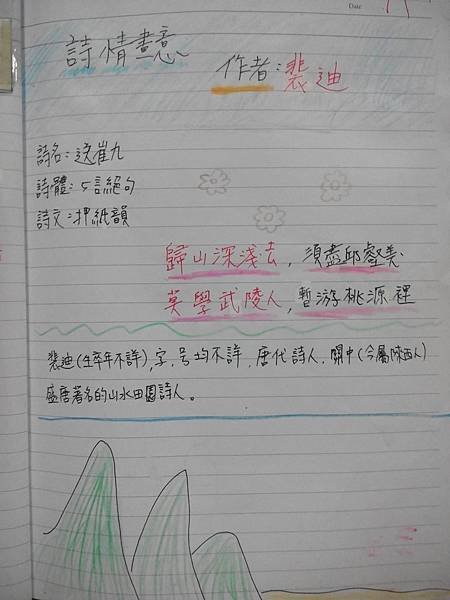 Date
詩情畫意
作者:裴迪
詩名:送崔九
詩體:5言絕句
詩文:押紙韻
歸山深淺去,須盡邱壑美.
莫學武陵人,暫游桃源裡
裴迪(生卒年不詳),字.号均不詳,唐代詩人.關中(今屬陝西人)
盛唐著名的山水田園詩人。